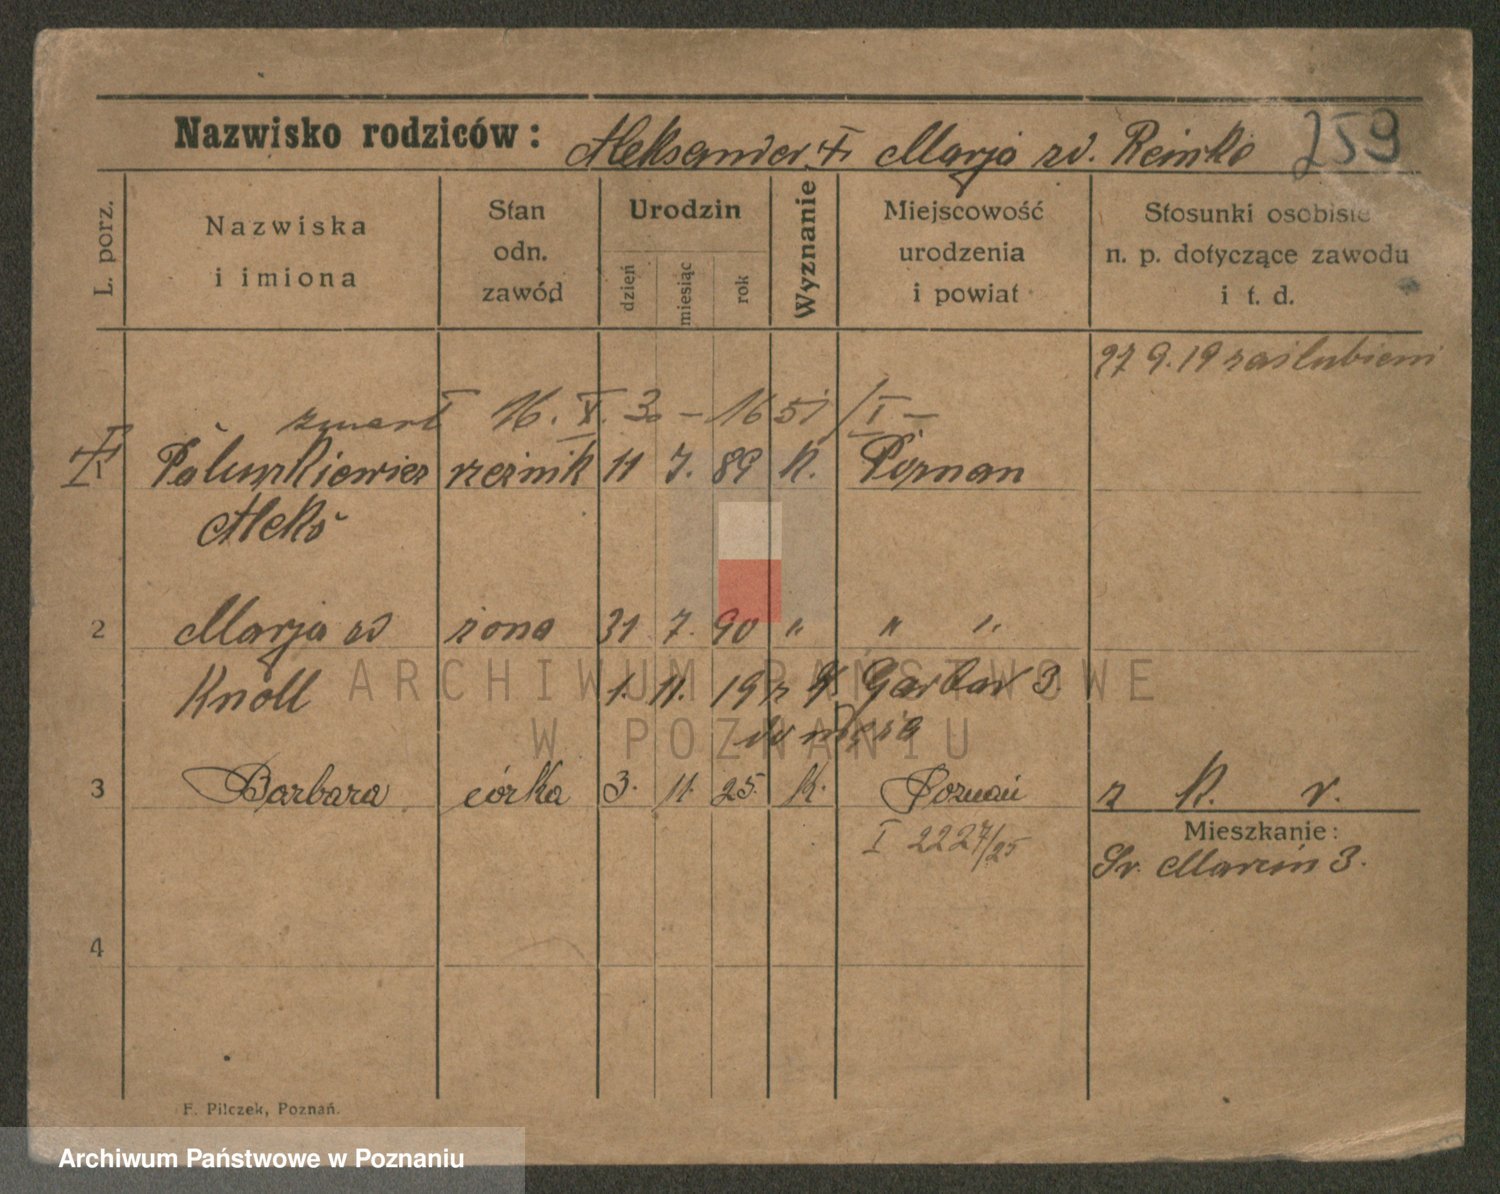 Nazwisko rodziców: Aleksander + Marja zd. Reinke 259
L. porz.
Nazwiska i imiona
Stan odn. zawód
Urodzin
dzień
miesiąc
rok
Wyznanie
Miejscowość urodzenia i powiat
Stosunki osobiste n. p. dotyczące zawodu i t. d.
27 9. 19 zaślubieni
zmarł 16. X. 30 – 1651/I –
1 rzeźnik 11 7. 89 K. Poznan
Aleks
2 Marja zd żona 31 7. 90 " " "
Knoll 1. 11. 19 z Garbar 3
do męża
3 Barbara córka 3. 11. 25. K. Poznań z K. r.
I 2227/25
Mieszkanie:
Św. Marcin 3.
4
F. Pilczek, Poznań.
ARCHIWUM PAŃSTWOWE
W POZNANIU
Archiwum Państwowe w Poznaniu